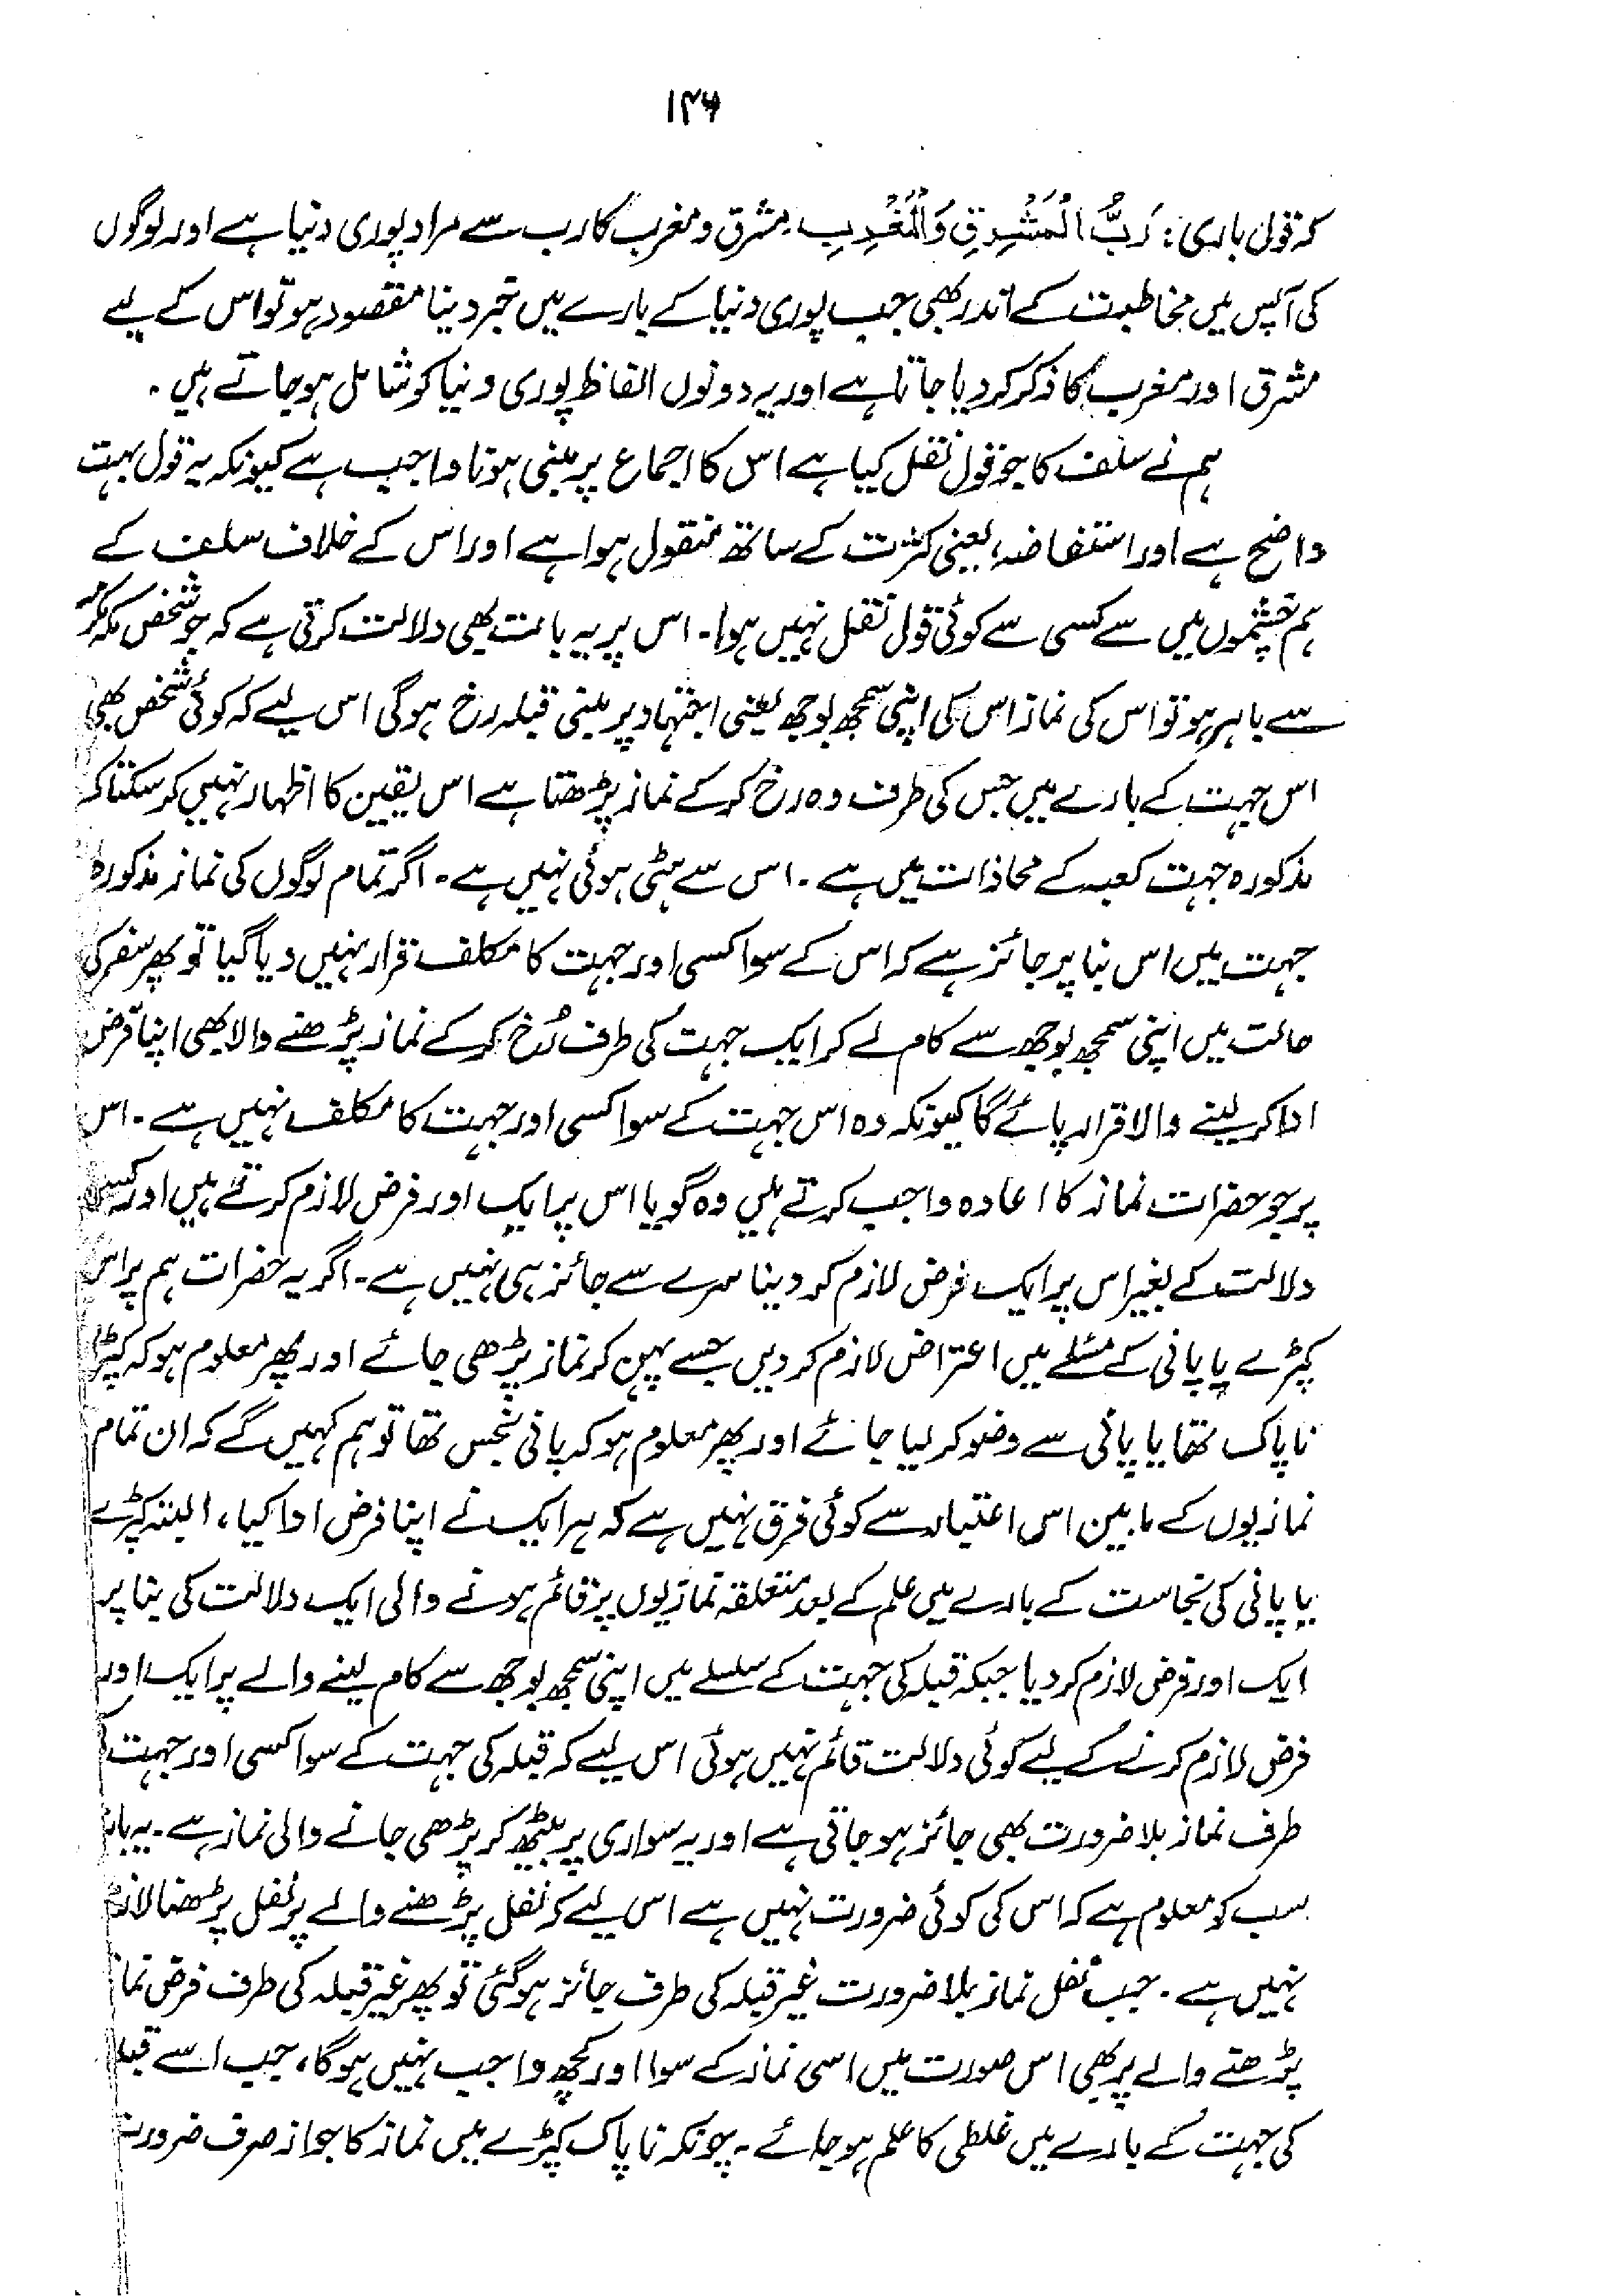 ۱۴۶
کہ قول باری: رَبُّ الْمَشْرِقِ وَالْمَغْرِبِ۔ مشرق و مغرب کا رب سے مراد پوری دنیا ہے اور لوگوں
کی آپس میں مخاطبت کے اندر بھی جب پوری دنیا کے بارے میں خبر دینا مقصود ہو تو اس کے لیے
مشرق اور مغرب کا ذکر کر دیا جاتا ہے اور یہ دونوں الفاظ پوری دنیا کو شامل ہو جاتے ہیں۔
ہم نے سلف کا جو قول نقل کیا ہے اس کا اجماع پر مبنی ہونا واجب ہے کیونکہ یہ قول بہت
واضح ہے اور استفاضہ یعنی کثرت کے ساتھ منقول ہوا ہے اور اس کے خلاف سلف کے
ہم چشموں میں سے کسی سے کوئی قول نقل نہیں ہوا۔ اس پر یہ بات بھی دلالت کرتی ہے کہ جو شخص مکہ مکرمہ
سے باہر ہو تو اس کی نماز اس کی اپنی سمجھ بوجھ یعنی اجتہاد پر مبنی قبلہ رخ ہوگی اس لیے کہ کوئی شخص بھی
اس جہت کے بارے میں جس کی طرف وہ رخ کر کے نماز پڑھتا ہے اس یقین کا اظہار نہیں کر سکتا کہ
مذکورہ جہت کعبہ کے محاذات میں ہے۔ اس سے ہٹی ہوئی نہیں ہے۔ اگر تمام لوگوں کی نماز مذکورہ
جہت میں اس بنا پر جائز ہے کہ اس کے سوا کسی اور جہت کا مکلف قرار نہیں دیا گیا تو پھر سفر کی
حالت میں اپنی سمجھ بوجھ سے کام لے کر ایک جہت کی طرف رُخ کر کے نماز پڑھنے والا بھی اپنا فرض
ادا کر لینے والا قرار پائے گا کیونکہ وہ اس جہت کے سوا کسی اور جہت کا مکلف نہیں ہے۔ اس
پر جو حضرات نماز کا اعادہ واجب کرتے ہیں وہ گویا اس پر ایک اور فرض لازم کرتے ہیں اور کسی
دلالت کے بغیر اس پر ایک فرض لازم کر دینا سرے سے جائز ہی نہیں ہے۔ اگر یہ حضرات ہم پر اس
کپڑے یا پانی کے مسئلے میں اعتراض لازم کر دیں جسے پہن کر نماز پڑھی جائے اور پھر معلوم ہو کہ کپڑا
ناپاک تھا یا پانی سے وضو کر لیا جائے اور پھر معلوم ہو کہ پانی نجس تھا تو ہم کہیں گے کہ ان تمام
نمازیوں کے مابین اس اعتبار سے کوئی فرق نہیں ہے کہ ہر ایک نے اپنا فرض ادا کیا، البتہ کپڑے
یا پانی کی نجاست کے بارے میں علم کے بعد متعلقہ نمازیوں پر قائم ہونے والی ایک دلالت کی بنا پر
ایک اور فرض لازم کر دیا جبکہ قبلہ کی جہت کے سلسلے میں اپنی سمجھ بوجھ سے کام لینے والے پر ایک اور
فرض لازم کرنے کے لیے کوئی دلالت قائم نہیں ہوئی اس لیے کہ قبلہ کی جہت کے سوا کسی اور جہت
طرف نماز بلا ضرورت بھی جائز ہو جاتی ہے اور یہ سواری پر بیٹھ کر پڑھی جانے والی نماز ہے۔ یہ بات
سب کو معلوم ہے کہ اس کی کوئی ضرورت نہیں ہے اس لیے کہ نفل پڑھنے والے پر نفل پڑھنا لازم
نہیں ہے۔ جب نفل نماز بلا ضرورت غیر قبلہ کی طرف جائز ہو گئی تو پھر غیر قبلہ کی طرف فرض نماز
پڑھنے والے پر بھی اس صورت میں اسی نماز کے سوا اور کچھ واجب نہیں ہوگا، جب اسے قبلہ
کی جہت کے بارے میں غلطی کا علم ہو جائے۔ چونکہ ناپاک کپڑے میں نماز کا جواز صرف ضرورت